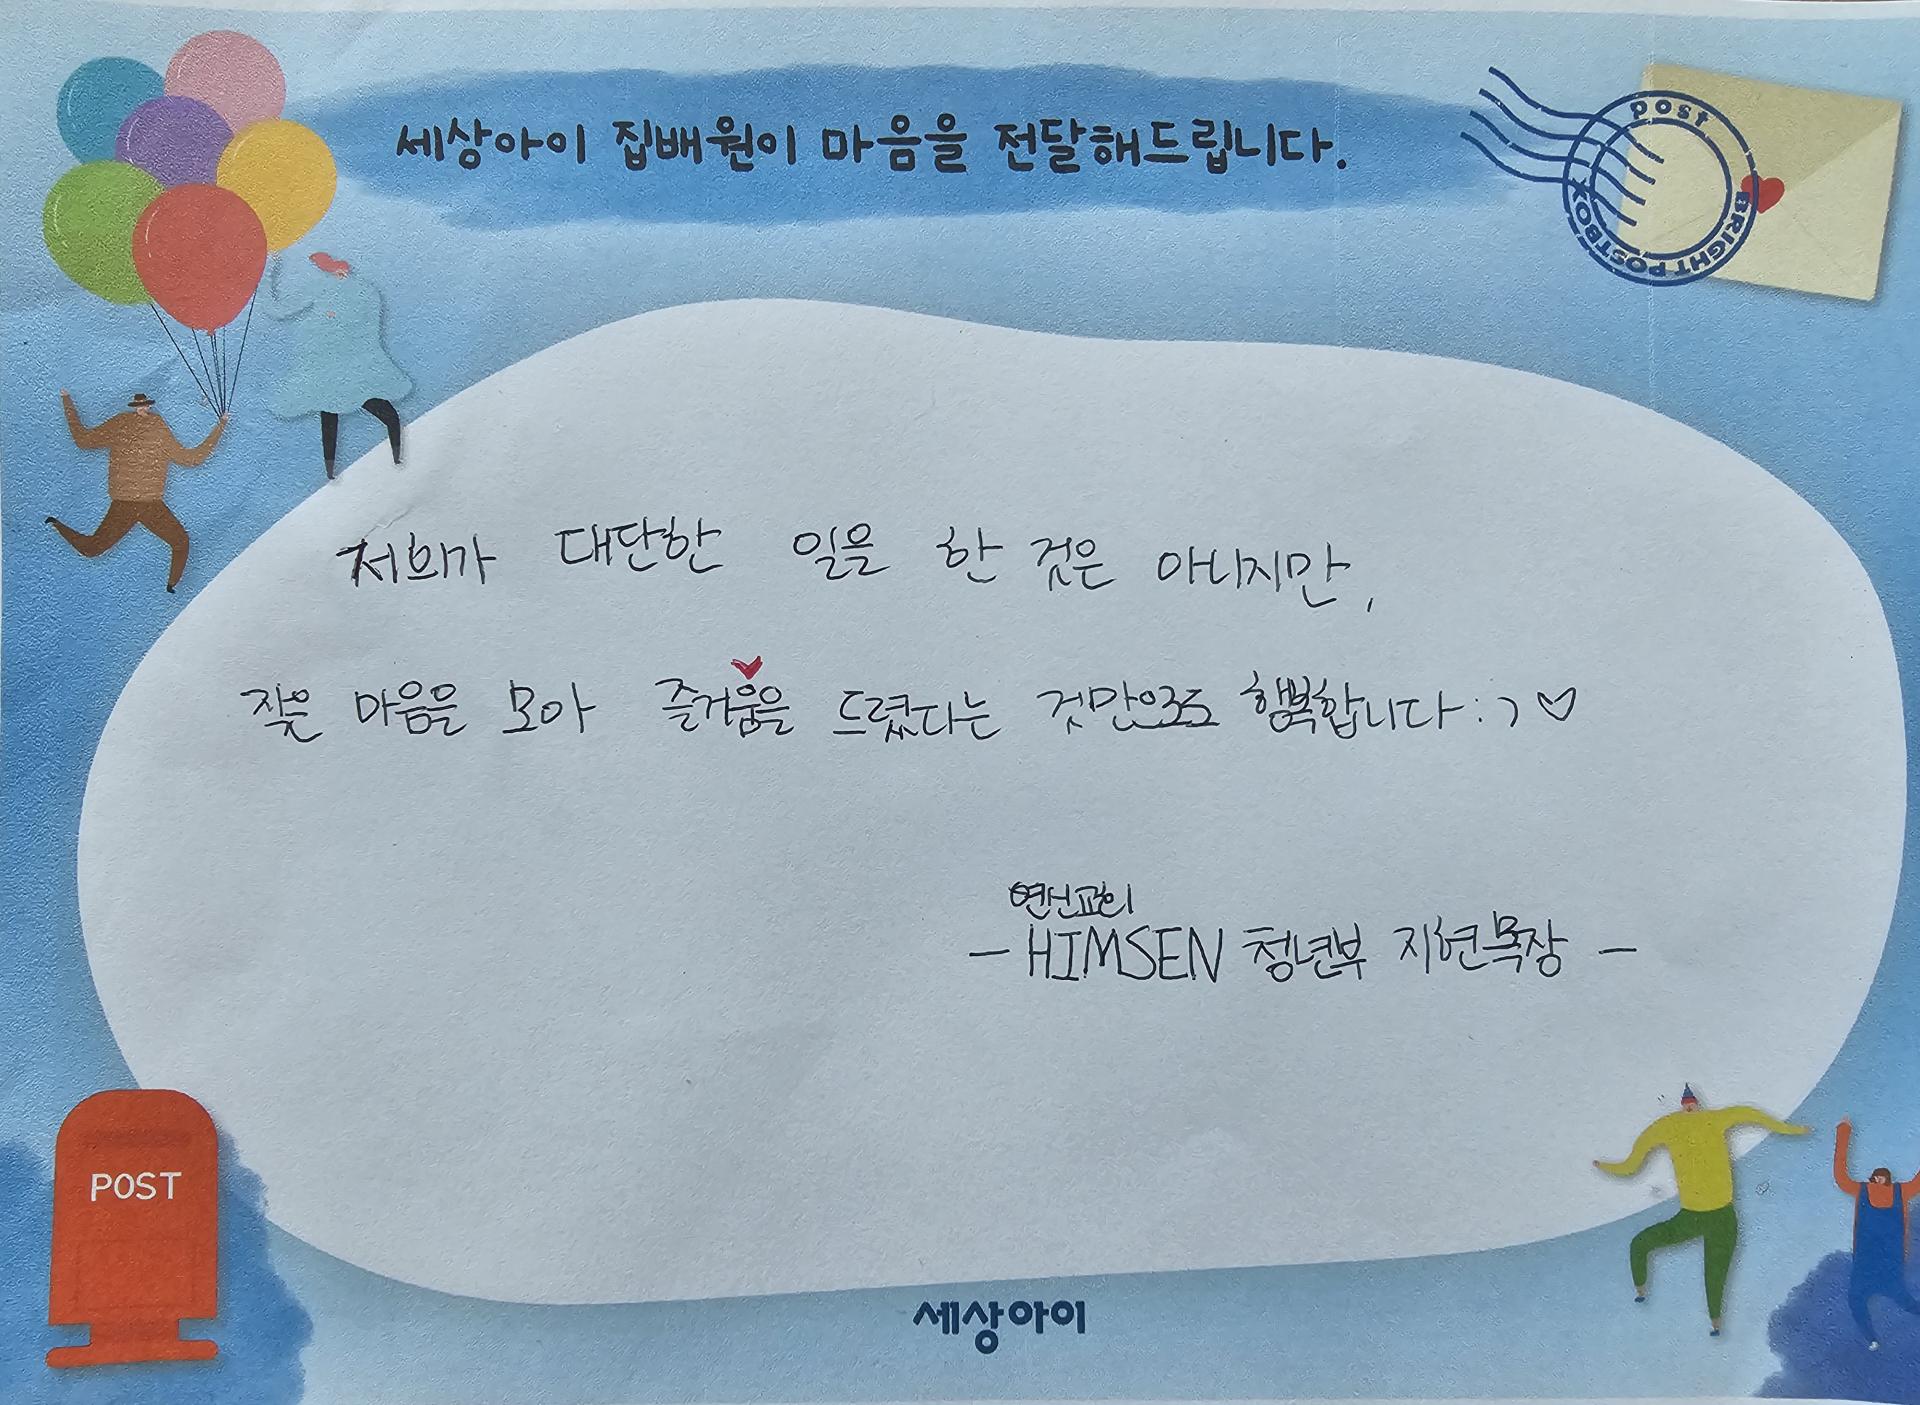 세상아이 집배원이 마음을 전달해드립니다.
post
BRIGHT POSTBOX
저희가 대단한 일을 한 것은 아니지만,
작은 마음을 모아 즐거움을 드렸다는 것만으로도 행복합니다 :) ♡
연신교회
- HIMSEN 청년부 지현목장 -
POST
세상아이